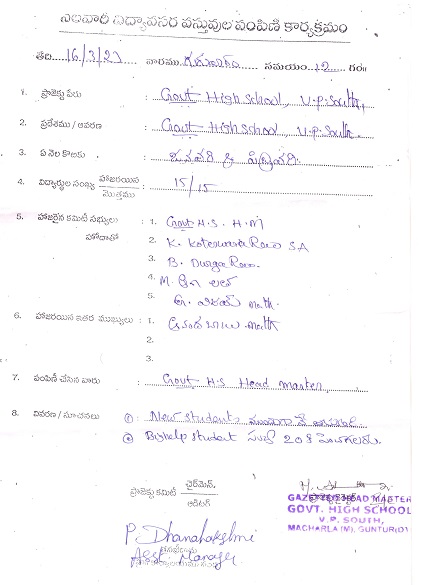 నెలవారీ నిత్యావసర వస్తువుల పంపిణి కార్యక్రమం
తేది..16/3/23 వారము గురువారం సమయం..12..గం॥
1. ప్రాజెక్టు పేరు : Govt High School, V.P. South,
2. ప్రదేశము / ఆవరణ : Govt High School, V.P. South.
3. ఏ నెల కొరకు : జనవరి & ఫిబ్రవరి
4. విద్యార్థుల సంఖ్య హాజరయిన / మొత్తము : 15/15
5. హాజరైన కమిటీ సభ్యులు : 1. Govt H.S. H.M
హోదాతో 2. K. Koteswara Rao SA
3. B. Durga Rao.
4. M.
5. విజయ్ math.
6. హాజరయిన ఇతర ముఖ్యులు : 1. ఆనందబాబు math
2.
3.
7. పంపిణీ చేసిన వారు : Govt H.S Head master,
8. వివరణ / సూచనలు ① New students
② student 208
ప్రాజెక్టు కమిటీ ఛైర్‌మెన్
ఆడిటర్
GAZETTED HEAD MASTER
GOVT. HIGH SCHOOL
V.P. SOUTH,
MACHARLA (M), GUNTUR(D)
P. Dhanalakshmi
Asst. Manager